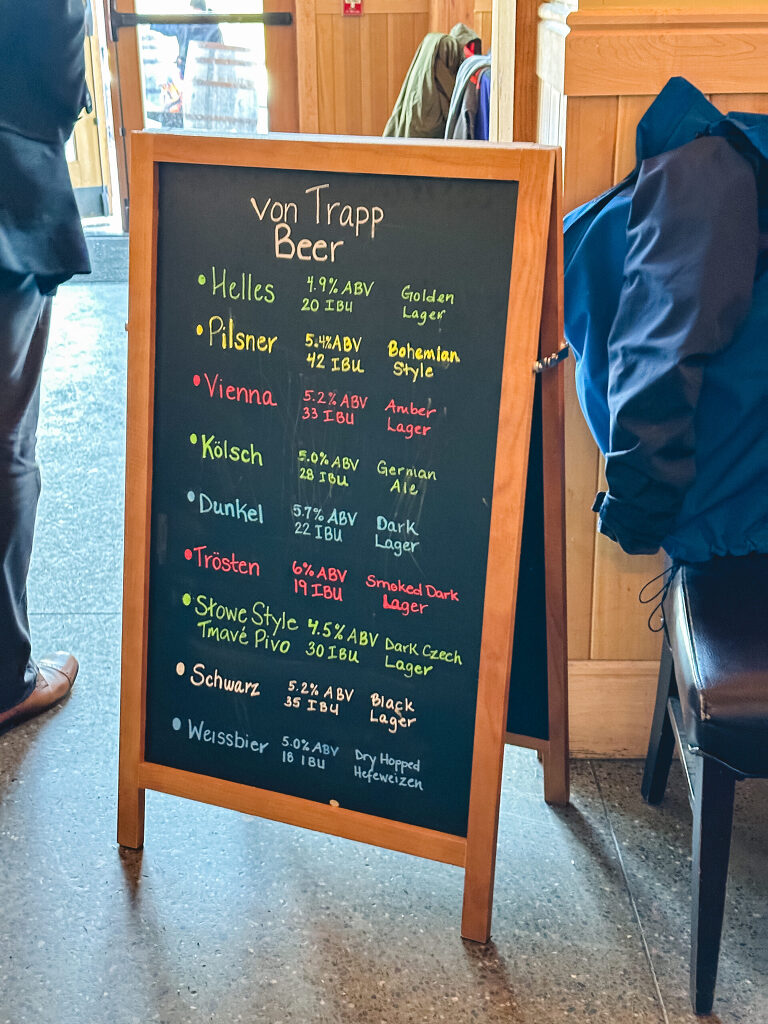 von Trapp
Beer
• Helles 4.9% ABV Golden
20 IBU Lager
• Pilsner 5.4% ABV Bohemian
42 IBU Style
• Vienna 5.2% ABV Amber
33 IBU Lager
• Kölsch 5.0% ABV German
28 IBU Ale
• Dunkel 5.7% ABV Dark
22 IBU Lager
• Trösten 6% ABV Smoked Dark
19 IBU Lager
• Stowe Style 4.5% ABV Dark Czech
Tmavé Pivo 30 IBU Lager
• Schwarz 5.2% ABV Black
35 IBU Lager
• Weissbier 5.0% ABV Dry Hopped
18 IBU Hefeweizen